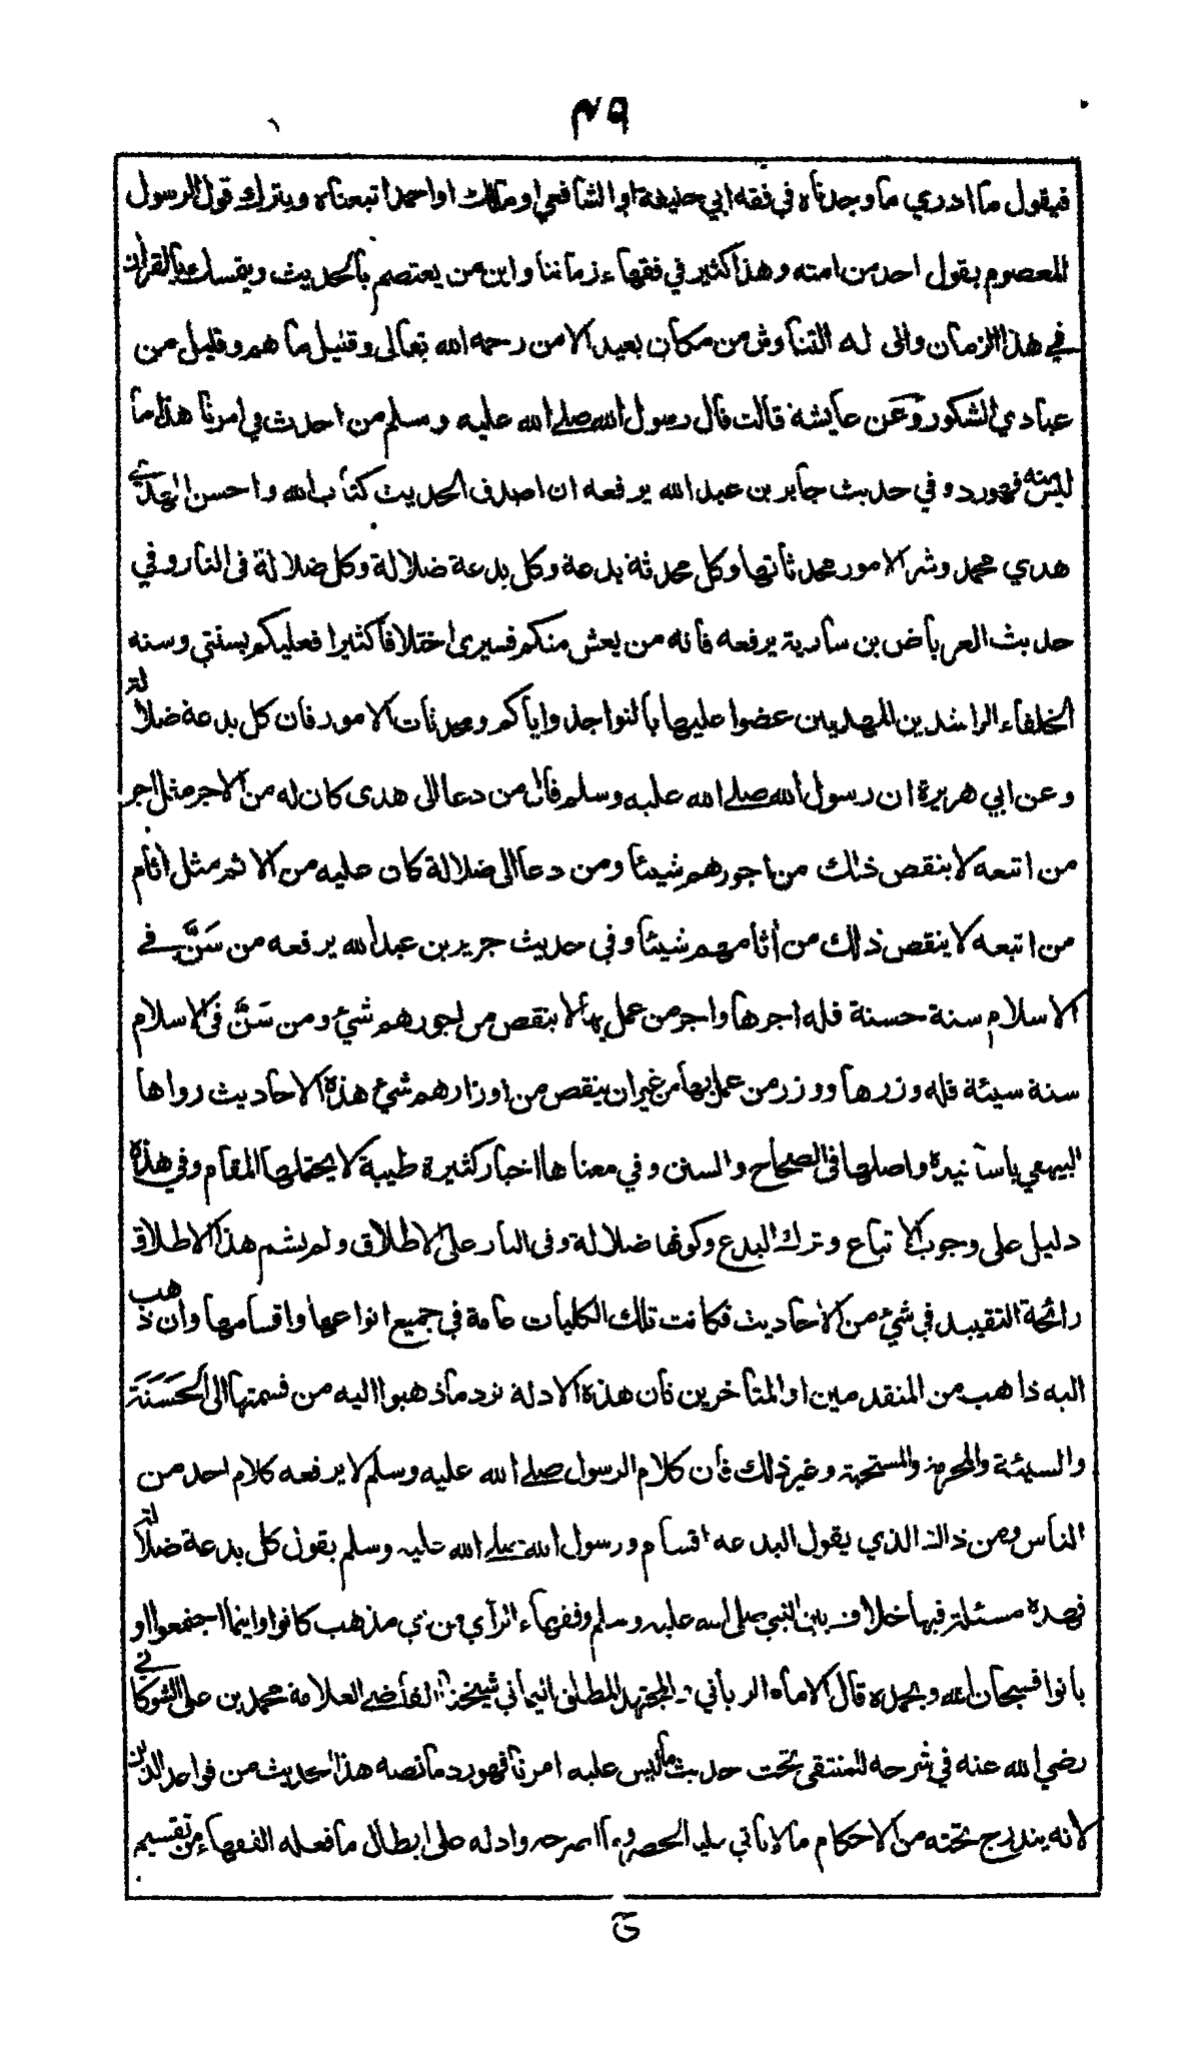 ٤٩
فيقول ما ادري ما وجدناه في فقه ابي حنيفة او الشافعي او مالك او احمد اتبعناه ويترك قول الرسول
المعصوم بقول احد من امته وهذا كثير في فقهاء زماننا واين من يعتصم بالحديث ويتمسك بالقرآن
في هذا الزمان وانى له التناوش من مكان بعيد الا من رحمه الله تعالى وقليل ما هم وقليل من
عبادي الشكور وعن عايشة قالت قال رسول الله صلے الله عليه وسلم من احدث في امرنا هذا ما
ليس منه فهورد و في حديث جابر بن عبد الله يرفعه ان اصدق الحديث كتاب الله واحسن الهدي
هدي محمد وشر الامور محدثاتها وكل محدثة بدعة وكل بدعة ضلالة وكل ضلالة فى النار وفي
حديث العرباض بن سارية يرفعه فانه من يعش منكم فسيرى اختلافا كثيرا فعليكم بسنتي وسنة
الخلفاء الراشدين المهديين عضوا عليها بالنواجذ واياكم ومحدثات الامور فان كل بدعة ضلالة
وعن ابي هريرة ان رسول الله صلے الله عليه وسلم قال من دعا الى هدى كان له من الاجر مثل اجر
من اتبعه لا ينقص ذلك من اجورهم شيئا ومن دعا الى ضلالة كان عليه من الاثم مثل اثام
من اتبعه لا ينقص ذلك من أثامهم شيئا وفي حديث جرير بن عبد الله يرفعه من سَنَّ في
الاسلام سنة حسنة فله اجرها واجر من عمل بها لا ينقص من اجورهم شيئ ومن سَنَّ فى الاسلام
سنة سيئة فله وزرها ووزر من عمل بها من غير ان ينقص من اوزارهم شيئ هذه الاحاديث رواها
البيهقي باسانيده واصلها فى الصحاح والسنن وفي معناها اخبار كثيرة طيبة لا يحتملها المقام وفي هذه
دليل على وجوب الاتباع وترك البدع وكونها ضلالة وفى النار على الاطلاق ولم يشم هذا الاطلاق
رائحة التقييد في شيئ من الأحاديث فكانت تلك الكليات عامة في جميع انواعها واقسامها وان ذهب
اليه ذاهب من المتقدمين او المتأخرين فان هذه الادلة ترد ما ذهبوا اليه من قسمتها الى الحَسَنَة
والسيئة والمحرمة والمستحبة وغير ذلك فان كلام الرسول صلے الله عليه وسلم لا يرفعه كلام احد من
الناس ومن ذاك الذي يقول البدعه اقسام ورسول الله صلے الله عليه وسلم يقول كل بدعة ضلالة
فهذه مسئلة فيها خلاف بين النبي صلى الله عليه وسلم وفقهاء الرأي من اي مذهب كانوا واينما اجتمعوا او
بانوا فسبحان الله وبحمده قال الامام الرباني المجتهد المطلق اليماني شيخنا القاضي العلامة محمد بن على الشوكاني
رضي الله عنه في شرحه للمنتقى تحت حديث ما ليس عليه امرنا فهو رد ما نصه هذا الحديث من قواعد الدين
لانه يندرج تحته من الاحكام ما لا يأتي عليه الحصر وما اصرحه وادله على ابطال ما فعله الفقهاء من تقسيم